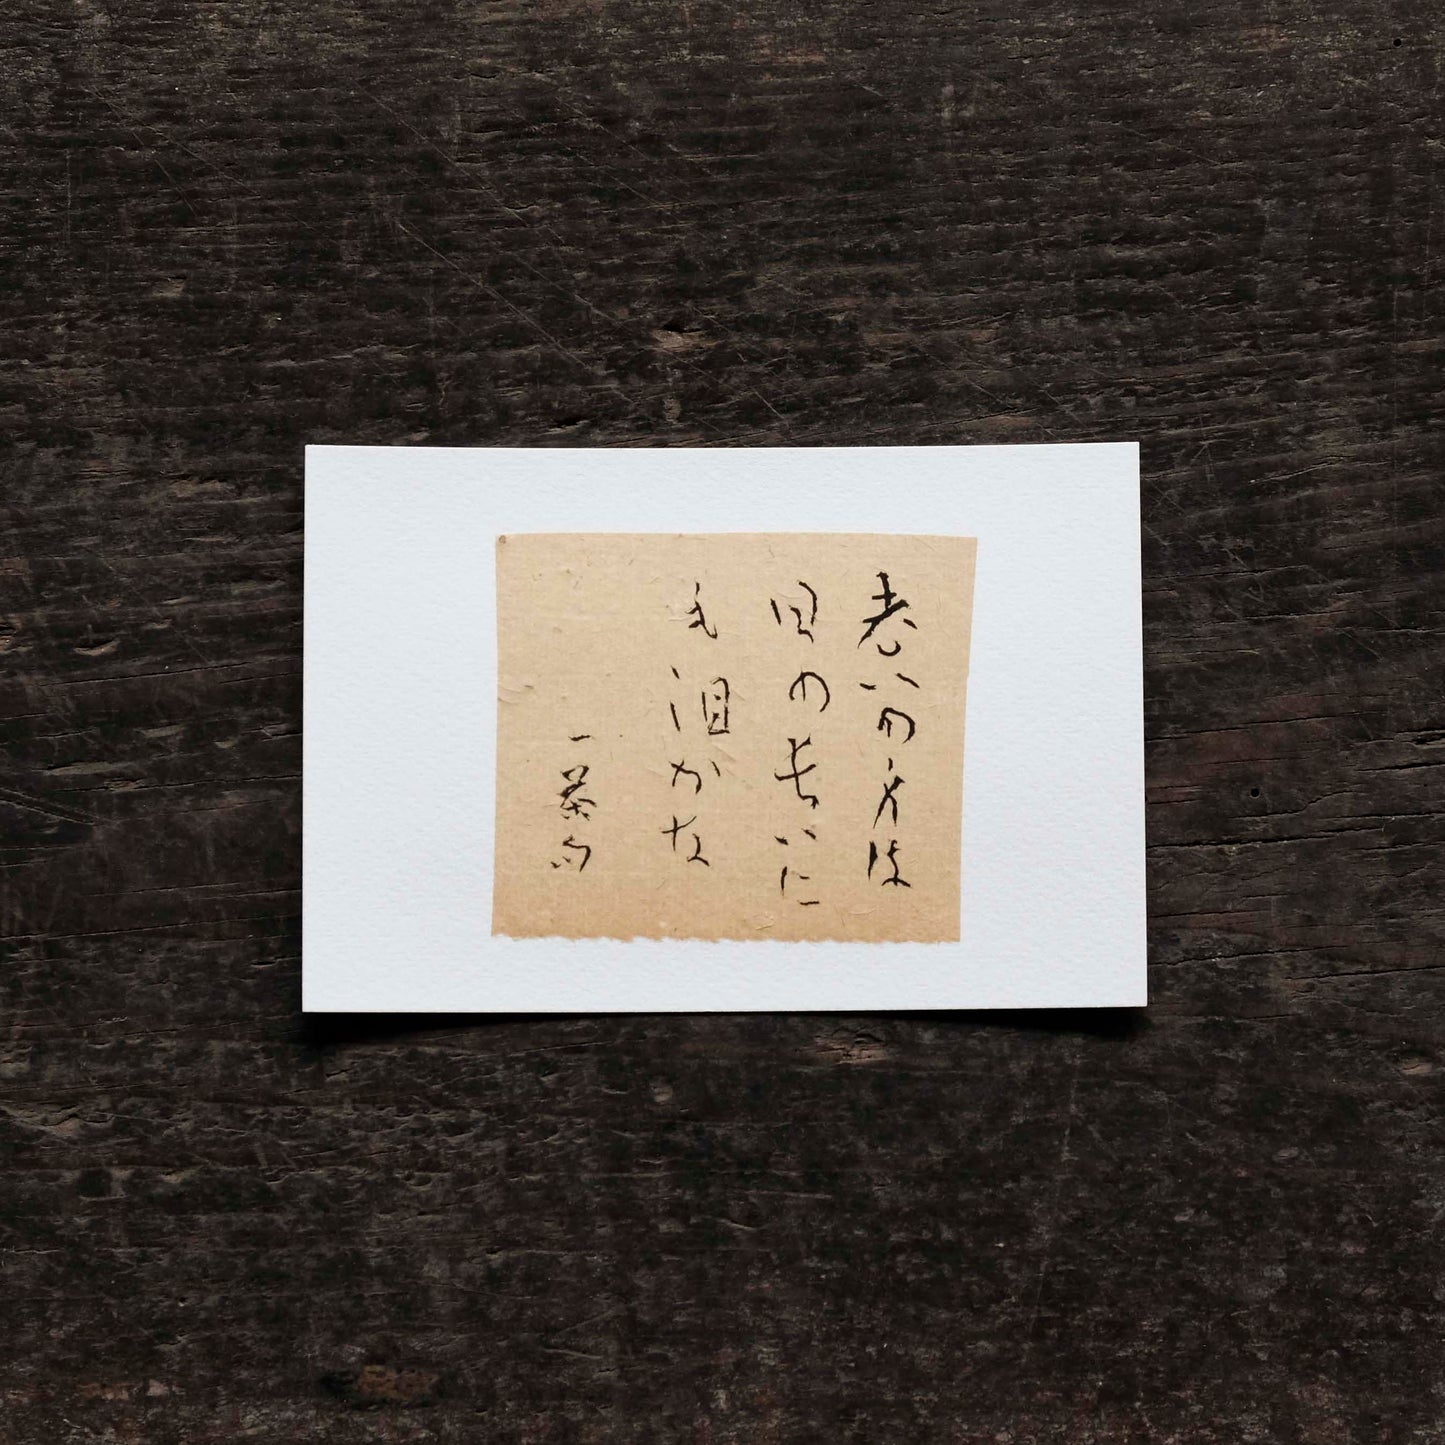 老いの身は
日の長いに
も泪かな
一茶句